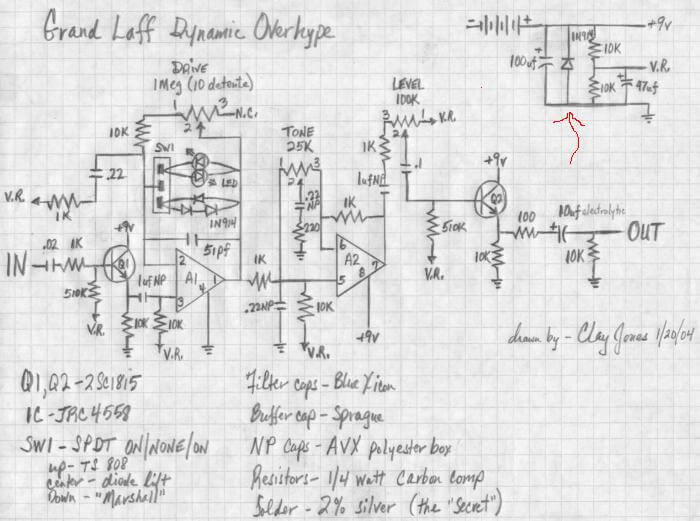 Grand Laff Dynamic Overhype
+9v
1N914
100uf
+
10K
V.R.
10K
+
47uf
DRIVE
1Meg (10 detents)
1
3
N.C.
2
10K
SW1
LED
1N914
.22
V.R.
1K
51pf
LEVEL
100K
3
1
V.R.
2
1K
.1
1ufNP
TONE
25K
1
3
2
.22
NP
220
1K
+9v
Q2
510K
V.R.
100
10uf electrolytic
+
OUT
10K
10K
IN
.02
1K
+9v
Q1
510K
V.R.
1ufNP
10K
10K
V.R.
2
A1
1
3
4
1K
.22NP
10K
V.R.
6
A2
7
5
8
+9v
drawn by - Clay Jones 1/20/04
Q1, Q2 - 2SC1815
IC - JRC4558
SW1 - SPDT ON/NONE/ON
up - TS 808
center - diode lift
Down - "Marshall"
Filter caps - Blue Xicon
Buffer cap - Sprague
NP caps - AVX polyester box
Resistors - 1/4 watt Carbon comp
Solder - 2% silver (the "Secret")